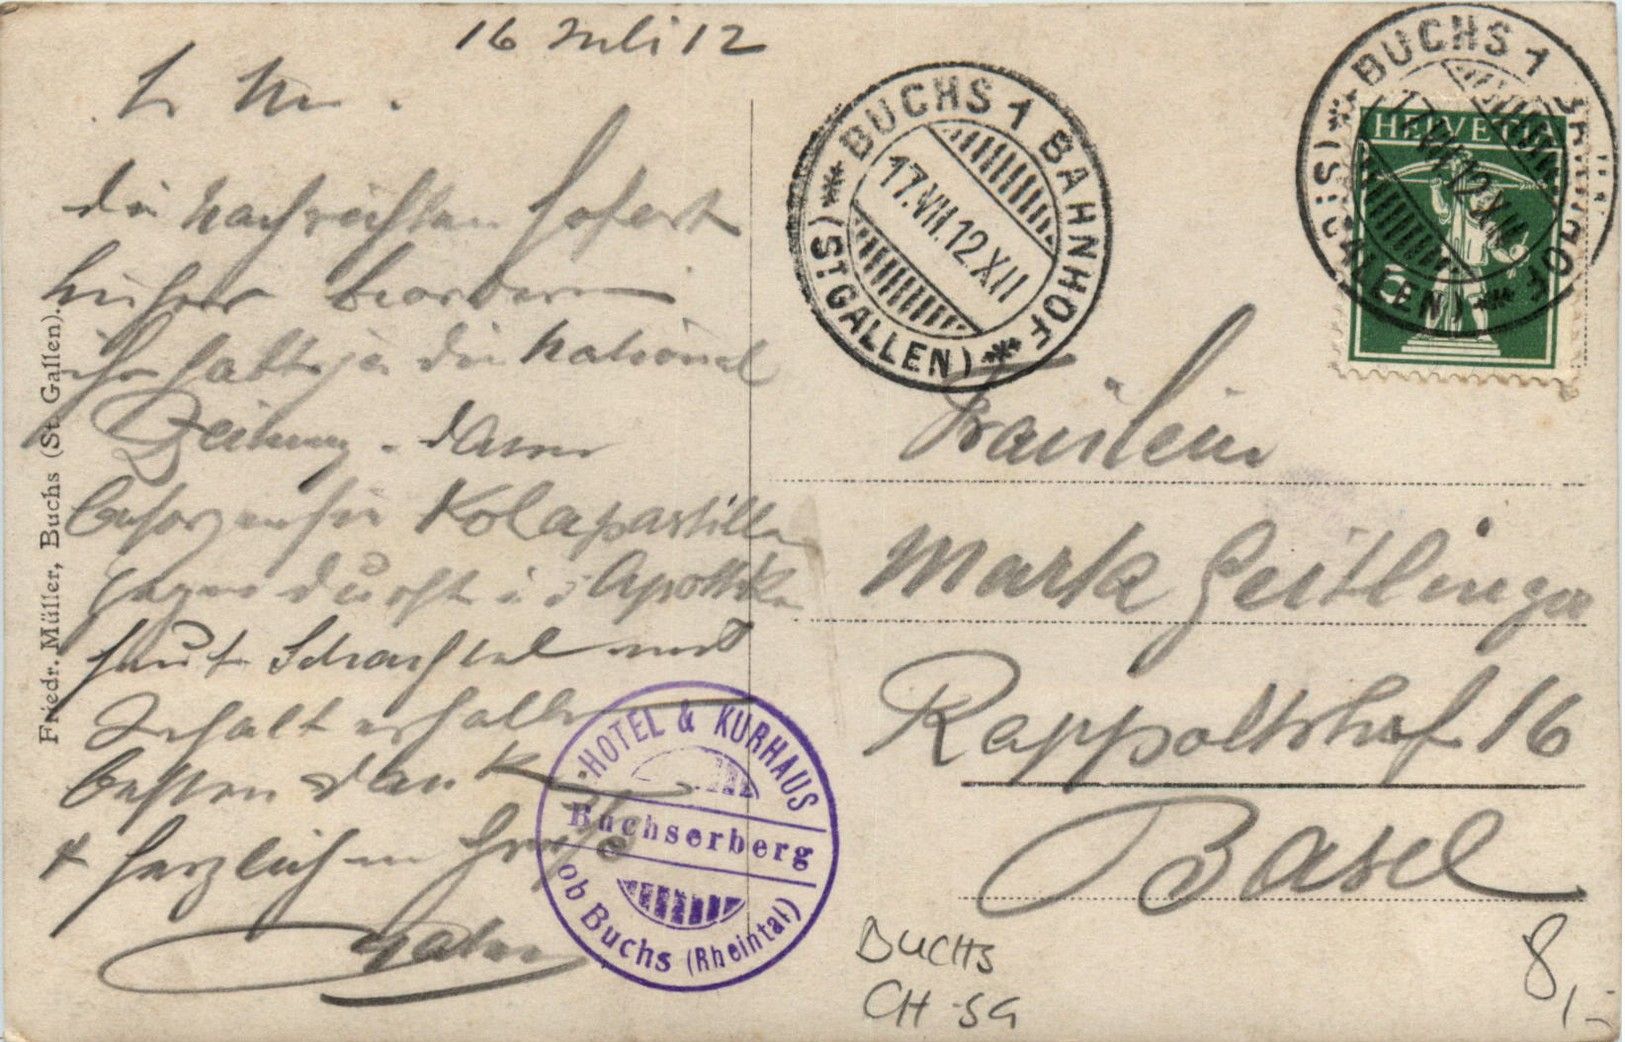 16 Juli 12
L. M.
die Nachrichten sofort
hieher beordern
ihr habt ja die National
Zeitung. Dann
besorgen sie Kolapastillen
gegen Durst i. d. Apotheke
haute Schachtel mit
Inhalt erhalten
besten Dank
& herzlichen Gruß
BUCHS 1 BAHNHOF
17.VII.12.XII
(ST GALLEN)
BUCHS 1 BAHNHOF
17.VII.12.XII
(ST GALLEN)
HELVETIA
5
Fräulein
Mark Geitlinger
Rappoltshof 16
Basel
HOTEL & KURHAUS
Buchserberg
ob Buchs (Rheintal)
BUCHS
CH-SG
8,-
Friedr. Müller, Buchs (St. Gallen).